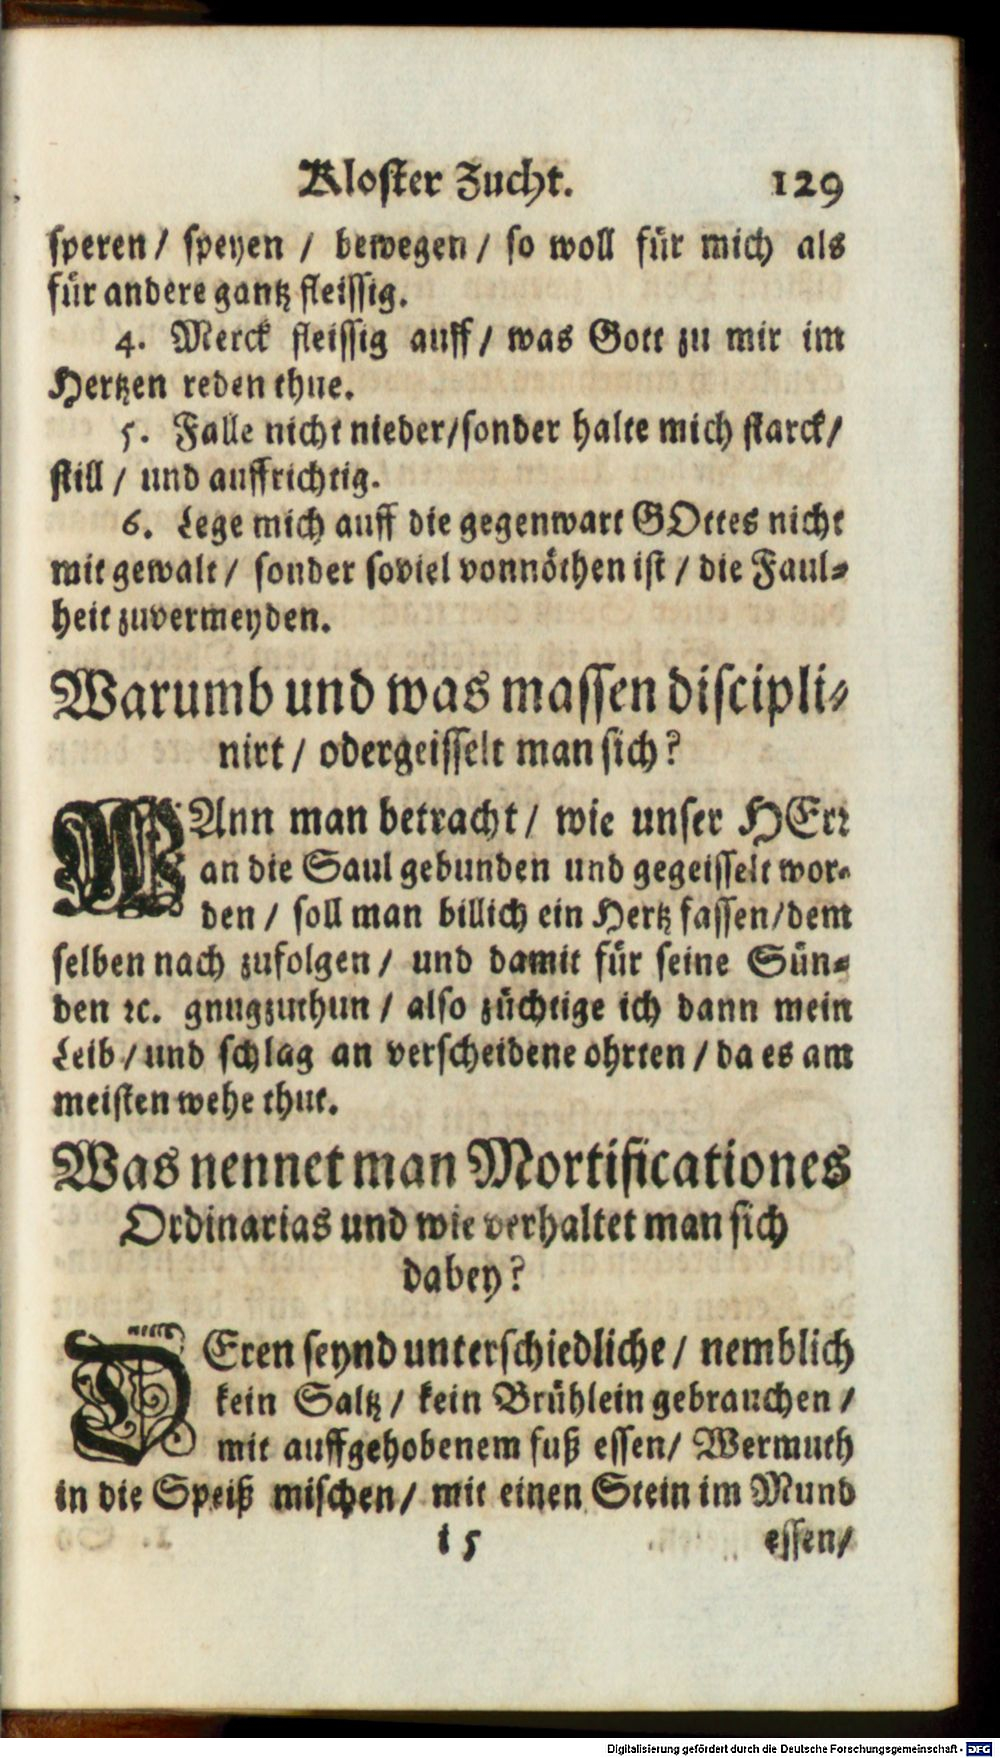 Kloster Zucht. 129
speren / speyen / bewegen / so woll für mich als
für andere gantz fleissig.
4. Merck fleissig auff / was Gott zu mir im
Hertzen reden thue.
5. Falle nicht nieder / sonder halte mich starck /
still / und auffrichtig.
6. Lege mich auff die gegenwart GOttes nicht
mit gewalt / sonder soviel vonnöthen ist / die Faul-
heit zuvermeyden.
Warumb und was massen discipli-
nirt / oder geisselt man sich?
WAnn man betracht / wie unser HErr
an die Saul gebunden und gegeisselt wor-
den / soll man billich ein Hertz fassen / dem
selben nach zufolgen / und damit für seine Sün-
den ꝛc. gnugzuthun / also züchtige ich dann mein
Leib / und schlag an verscheidene ohrten / da es am
meisten wehe thut.
Was nennet man Mortificationes
Ordinarias und wie verhaltet man sich
dabey?
DEren seynd unterschiedliche / nemblich
kein Saltz / kein Brühlein gebrauchen /
mit auffgehobenem fuß essen / Wermuth
in die Speiß mischen / mit einen Stein im Mund
i 5 essen /
Digitalisierung gefördert durch die Deutsche Forschungsgemeinschaft - DFG